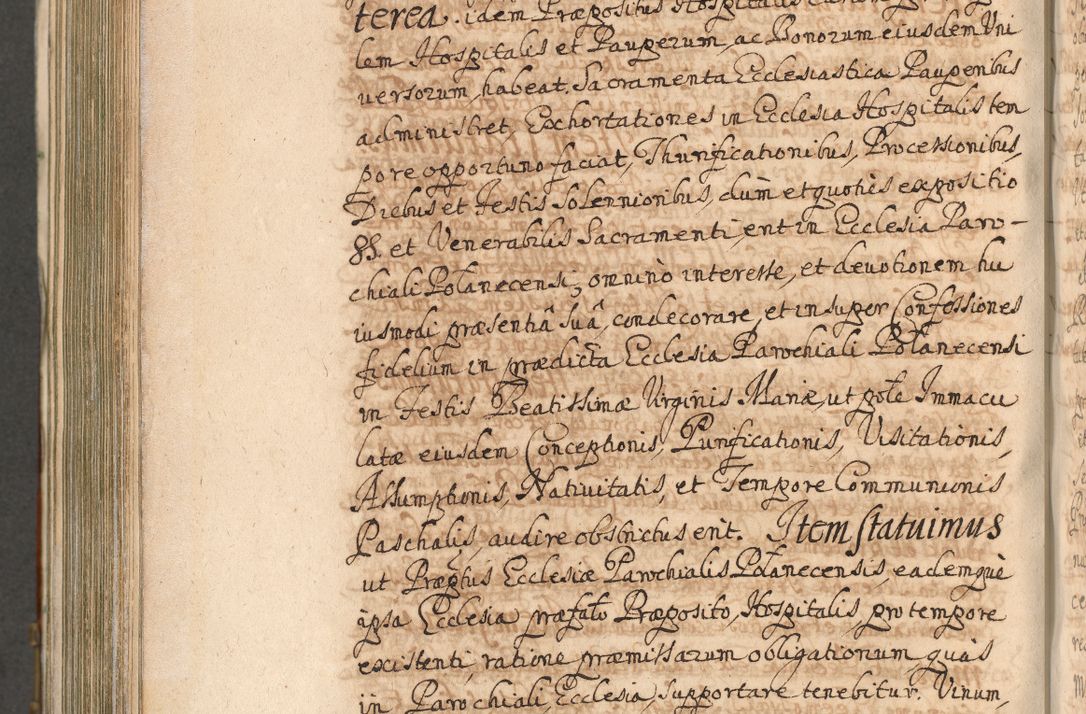 terea. idem Præpositus Hospitalis curam
lem Hospitalis et Pauperum, ac Bonorum eiusdem Uni
versorum, habeat. Sacramenta Ecclesiastica Pauperibus
administret, Exhortationes in Ecclesia Hospitalis tem
pore opportuno faciat, Thurificationibus, Processionibus,
Diebus et Festis Solennioribus, dum et quotiès expositio
SS. et Venerabilis Sacramenti, erit in Ecclesia Paro-
chiali Połanecensi, omninò interesse, et devotionem hu
iusmodi præsentiâ suâ, condecorare, et insuper Confessiones
fidelium in prædicta Ecclesia Parochiali Połanecensi
in Festis Beatissimæ Virginis Mariæ, ut pote Immacu
latæ eiusdem Conceptionis, Purificationis, Visitationis,
Assumptionis, Nativitatis, et Tempore Communionis
Paschalis, audire obstrictus erit. Item statuimus
ut Præptus Ecclesiæ Parochialis Połanecensis, eademquè
ipsa Ecclesia præfato Præposito, Hospitalis, pro tempore
existenti, ratione præmissarum obligationum, quas
in Parochiali, Ecclesia, supportare tenebitur. Vinum,